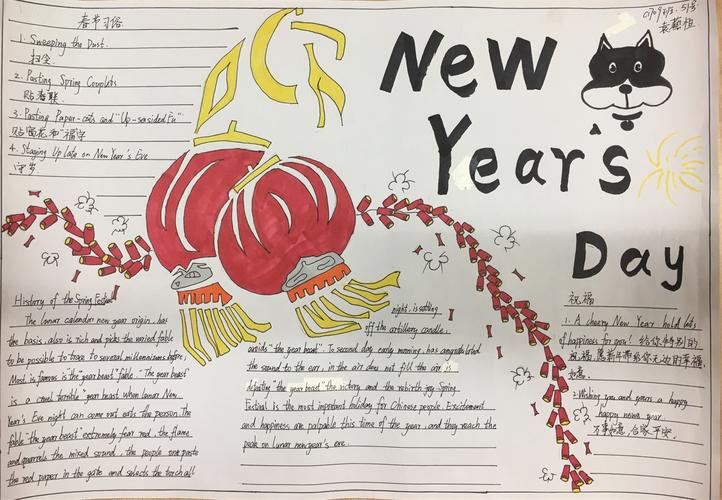 春节习俗
1. Sweeping the Dust.
扫尘.
2. Pasting Spring Couplets
贴春联.
3. Pasting Paper-cuts and "Up-sesided Fu"
贴窗花和"福字
4. Staying Up late on New Year's Eve
守岁
New
Year's
Day
History of the Spring Festival
The lunar calendar new year origin, has
the basis, also is rich and picks the varied fable
to be possible to trace to several millenniums before,
Most is famous is "the year beast" fable. The year beast"
is a cruel terrible year beast, when lunar New
Year's Eve night can come out eats the person. The
fable "the year beast" extremely fear red, the flame
and quarrels the mixed sound, the people one paste
the red paper in the gate and selects the torch all
night, is settling
off the artillery candle,
avoids "the year beast". To second day early morning, has
the sound to the ear, in the air does not fill the air is
defeating "the year beast" the victory and the rebirth joy Spring
Festival is the most important holiday for Chinese people. Excitement
and happiness are palpable this time of the year, and they reach the
peak on lunar new year's eve.
祝福
1. A cheery New Year hold lots
of happiness for you! 给你特别的
祝福,愿新年带给你无边的幸福、
如意.
2. Wishing you and yours a happy
happy new year.
万事如意,合家平安.